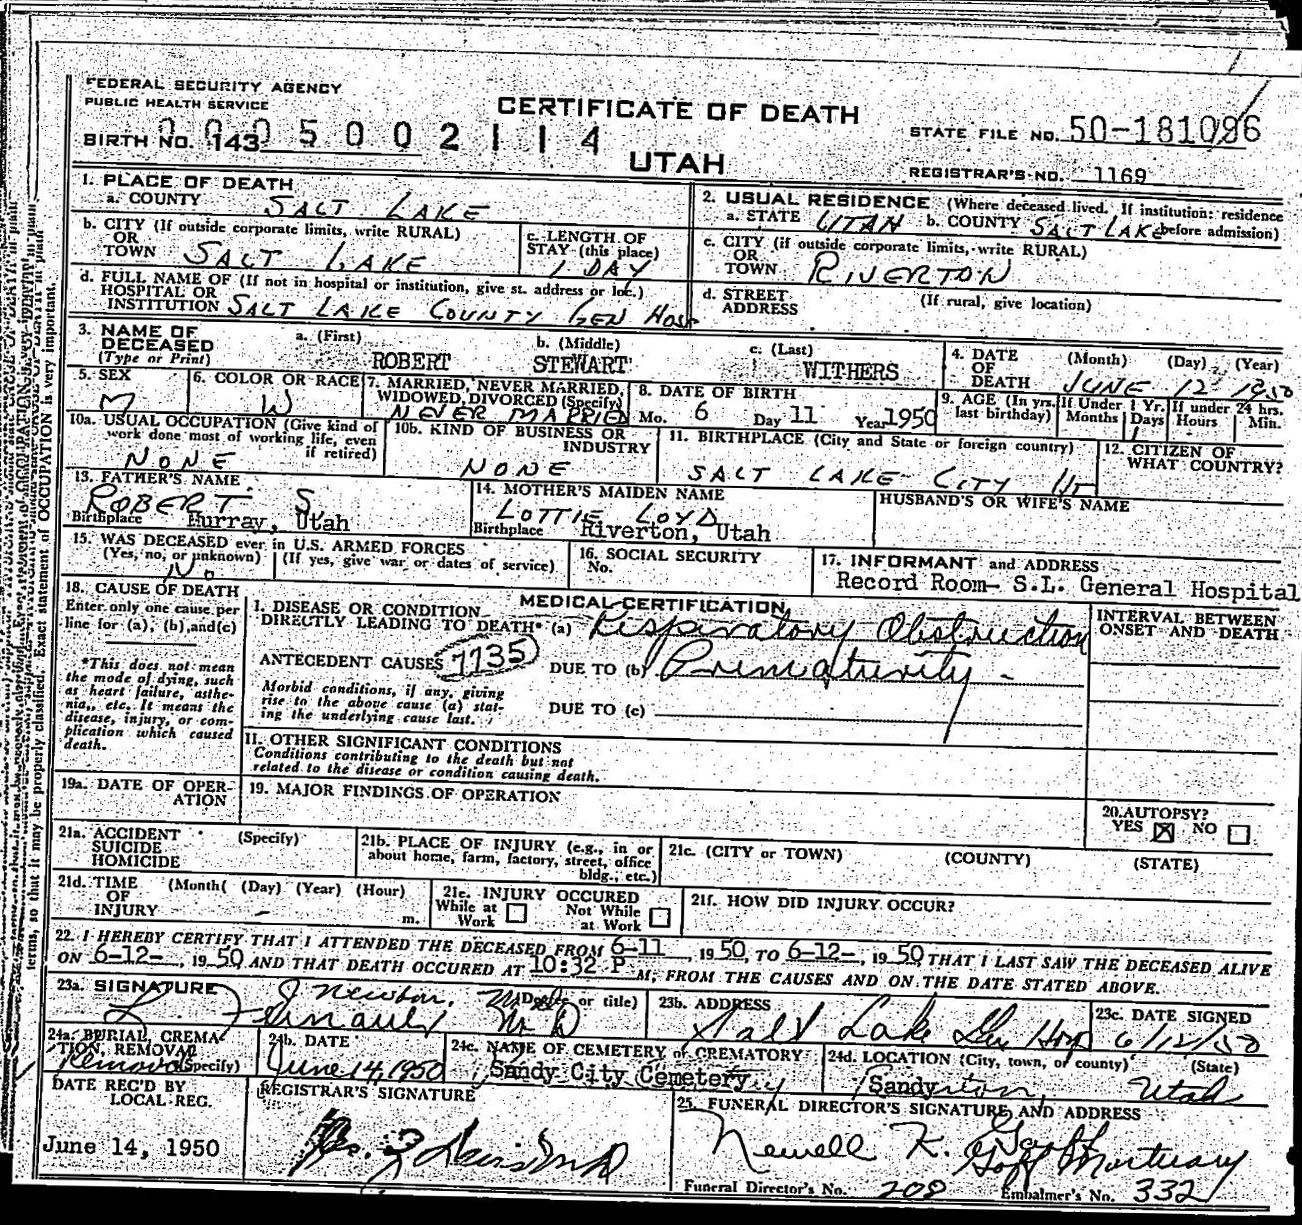 FEDERAL SECURITY AGENCY
PUBLIC HEALTH SERVICE
CERTIFICATE OF DEATH
STATE FILE NO. 50-181096
BIRTH NO. 143 5002114
UTAH
REGISTRAR'S NO. 1169
1. PLACE OF DEATH
a. COUNTY SALT LAKE
2. USUAL RESIDENCE (Where deceased lived. If institution: residence before admission)
a. STATE UTAH b. COUNTY SALT LAKE
b. CITY (If outside corporate limits, write RURAL) OR TOWN SALT LAKE
c. LENGTH OF STAY (this place) 1 DAY
c. CITY (if outside corporate limits, write RURAL) OR TOWN RIVERTON
d. FULL NAME OF (If not in hospital or institution, give st. address or loc.) HOSPITAL OR INSTITUTION SALT LAKE COUNTY GEN HOSP
d. STREET ADDRESS (If rural, give location)
3. NAME OF DECEASED (Type or Print)
a. (First) ROBERT b. (Middle) STEWART c. (Last) WITHERS
4. DATE OF DEATH (Month) (Day) (Year) JUNE 12 1950
5. SEX M
6. COLOR OR RACE W
7. MARRIED, NEVER MARRIED, WIDOWED, DIVORCED (Specify) NEVER MARRIED
8. DATE OF BIRTH Mo. 6 Day 11 Year 1950
9. AGE (In yrs. last birthday) If Under 1 Yr. Months Days 1 If under 24 hrs. Hours Min.
10a. USUAL OCCUPATION (Give kind of work done most of working life, even if retired) NONE
10b. KIND OF BUSINESS OR INDUSTRY NONE
11. BIRTHPLACE (City and State or foreign country) SALT LAKE CITY UT
12. CITIZEN OF WHAT COUNTRY?
13. FATHER'S NAME ROBERT S.
Birthplace Murray, Utah
14. MOTHER'S MAIDEN NAME LOTTIE LOYD
Birthplace Riverton, Utah
HUSBAND'S OR WIFE'S NAME
15. WAS DECEASED ever in U.S. ARMED FORCES (Yes, no, or unknown) (If yes, give war or dates of service) No
16. SOCIAL SECURITY No.
17. INFORMANT and ADDRESS
Record Room- S.L. General Hospital
18. CAUSE OF DEATH
Enter only one cause per line for (a), (b), and (c)
*This does not mean the mode of dying, such as heart failure, asthenia, etc. It means the disease, injury, or complication which caused death.
MEDICAL CERTIFICATION
I. DISEASE OR CONDITION DIRECTLY LEADING TO DEATH* (a) Respiratory Obstruction
ANTECEDENT CAUSES 7735 DUE TO (b) Prematurity
Morbid conditions, if any, giving rise to the above cause (a) stating the underlying cause last. DUE TO (c)
INTERVAL BETWEEN ONSET AND DEATH
II. OTHER SIGNIFICANT CONDITIONS
Conditions contributing to the death but not related to the disease or condition causing death.
19a. DATE OF OPERATION
19. MAJOR FINDINGS OF OPERATION
20. AUTOPSY?
YES NO
21a. ACCIDENT SUICIDE HOMICIDE (Specify)
21b. PLACE OF INJURY (e.g., in or about home, farm, factory, street, office bldg., etc.)
21c. (CITY or TOWN) (COUNTY) (STATE)
21d. TIME OF INJURY (Month( (Day) (Year) (Hour) m.
21e. INJURY OCCURED
While at Work Not While at Work
21f. HOW DID INJURY OCCUR?
22. I HEREBY CERTIFY THAT I ATTENDED THE DECEASED FROM 6-11, 1950, TO 6-12-, 1950 THAT I LAST SAW THE DECEASED ALIVE
ON 6-12-, 1950 AND THAT DEATH OCCURED AT 10:32 P M, FROM THE CAUSES AND ON THE DATE STATED ABOVE.
23a. SIGNATURE (Degree or title) M D
23b. ADDRESS Salt Lake Gen Hosp
23c. DATE SIGNED 6/12/50
24a. BURIAL, CREMATION, REMOVAL (Specify) Removal
24b. DATE June 14, 1950
24c. NAME OF CEMETERY or CREMATORY Sandy City Cemetery
24d. LOCATION (City, town, or county) (State) Sandy Utah
DATE REC'D BY LOCAL REG.
June 14, 1950
REGISTRAR'S SIGNATURE
25. FUNERAL DIRECTOR'S SIGNATURE AND ADDRESS
Newell K. Goff
Goff Mortuary
Funeral Director's No. 208 Embalmer's No. 332
terms, so that it may be properly classified. Exact statement of OCCUPATION is very important.